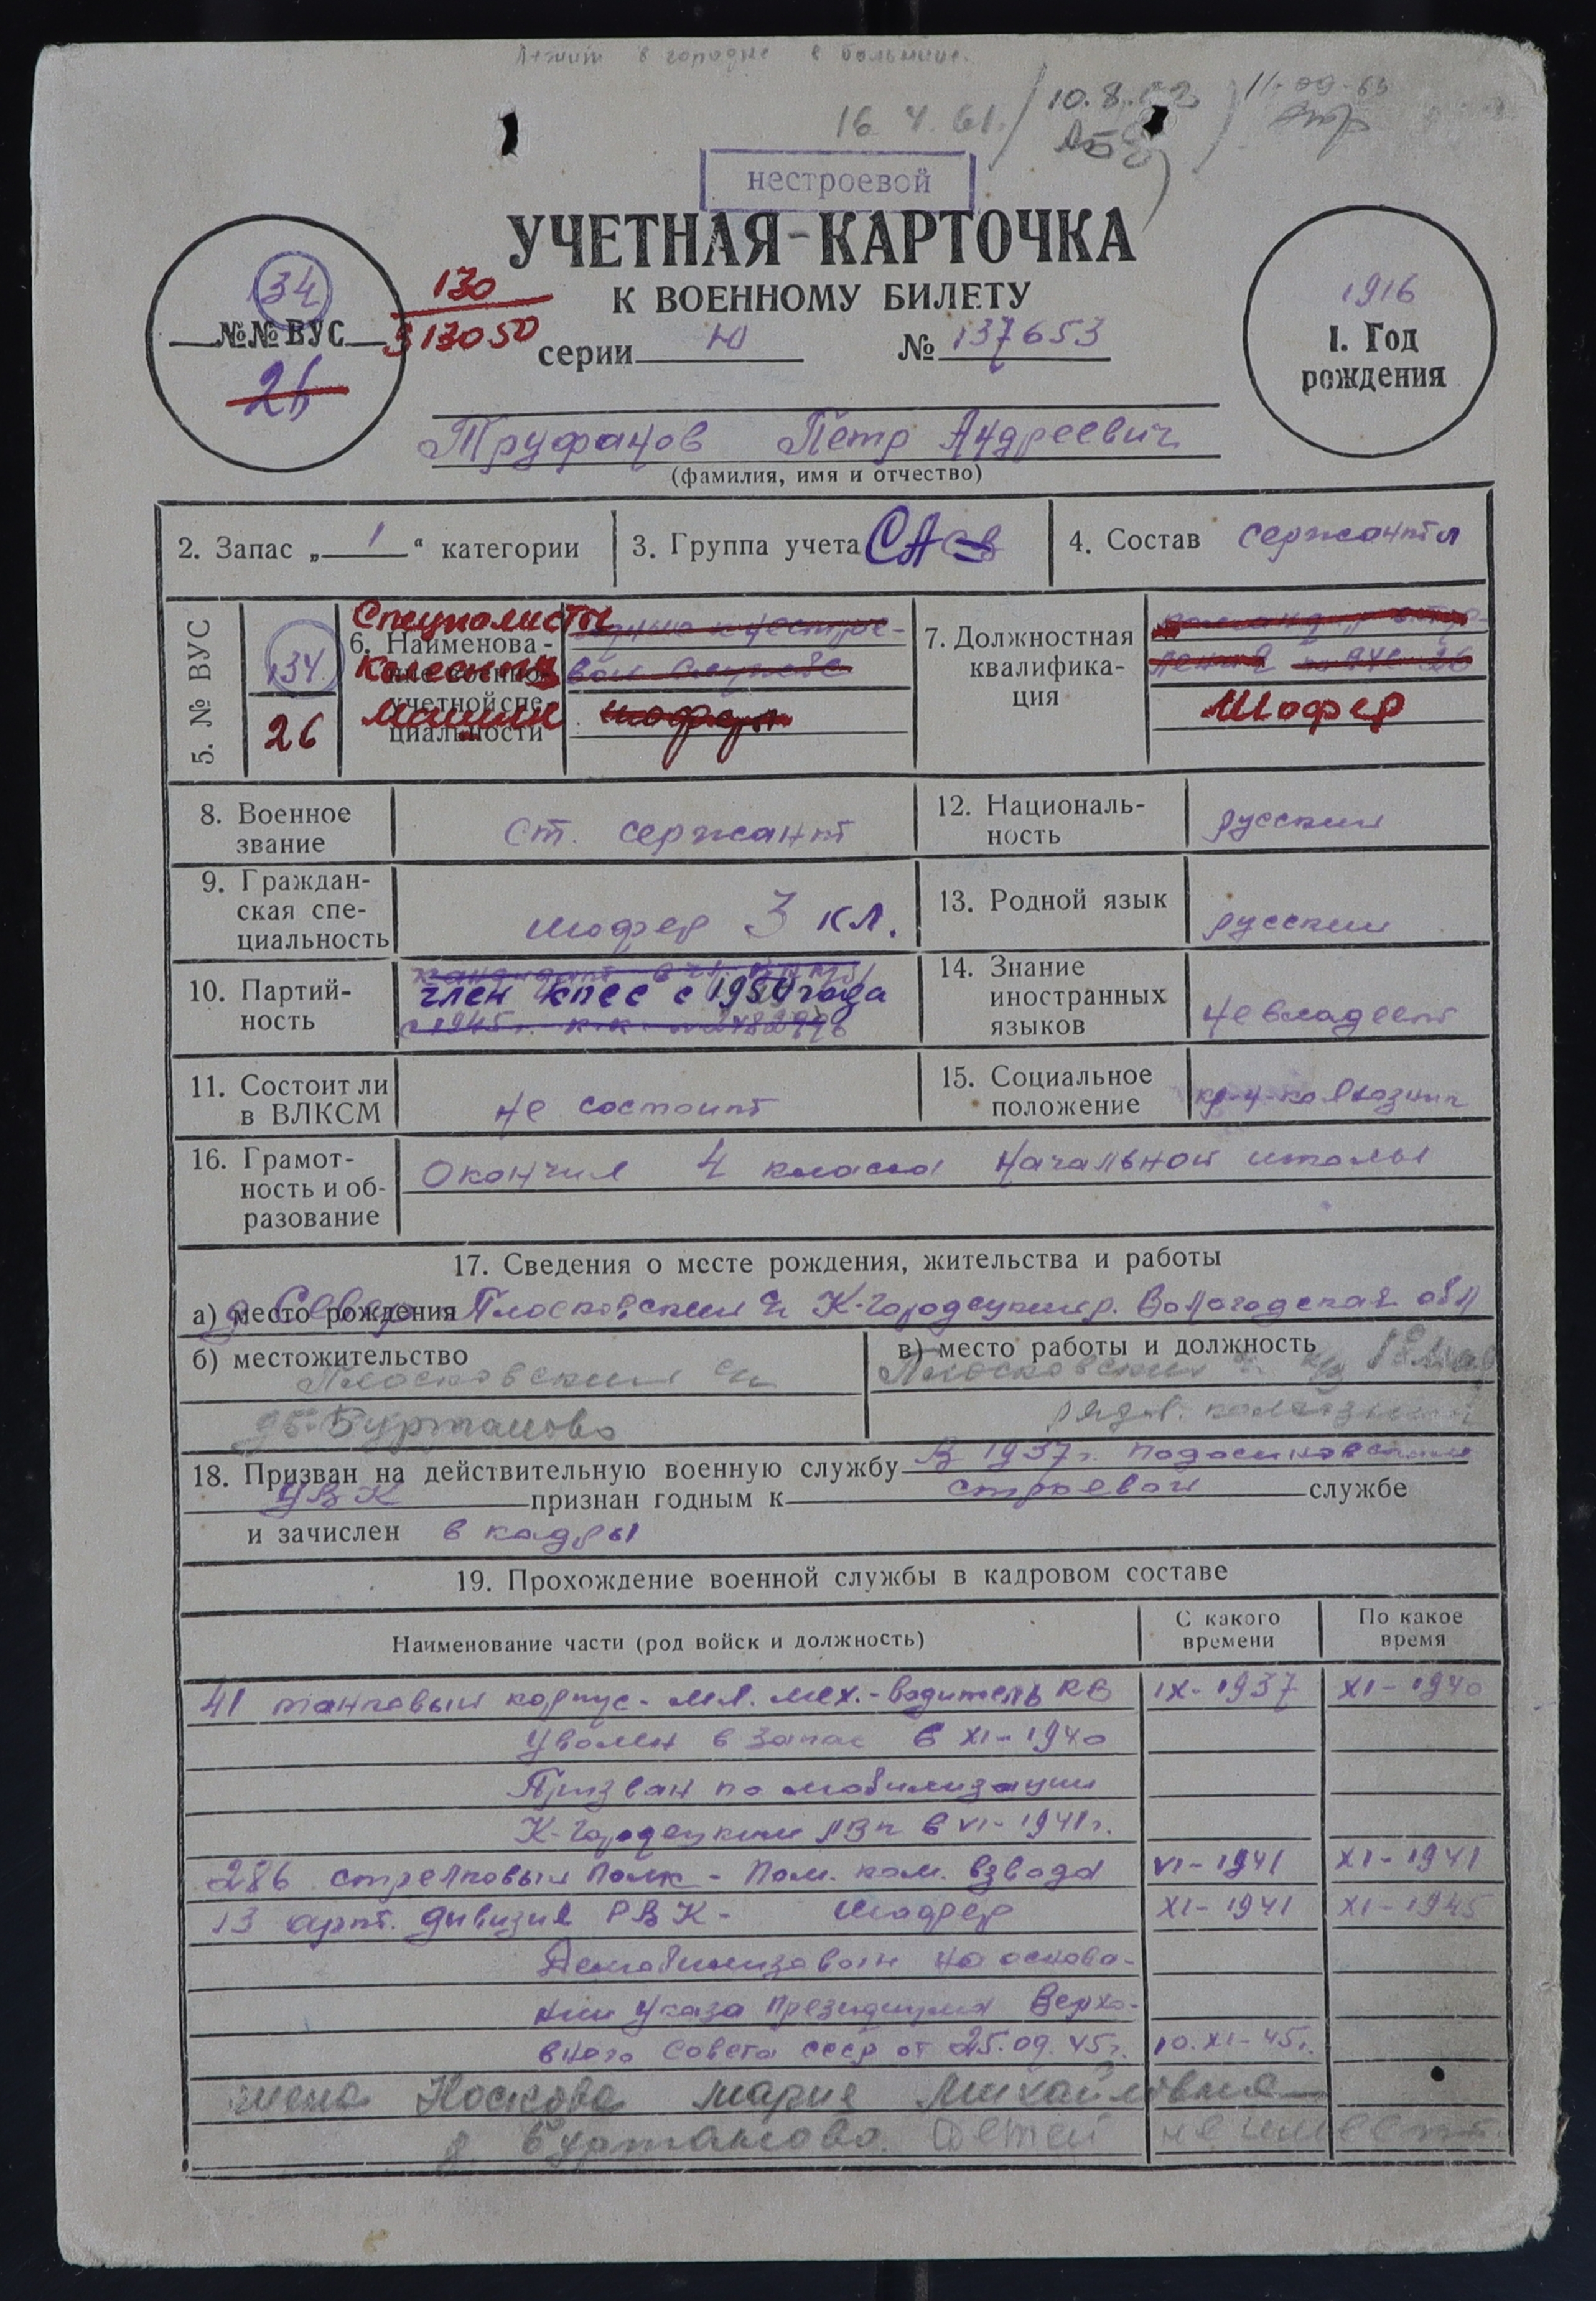 Лежит в городке в больнице.
16 4. 61. 10.8. 11-09-63
нестроевой
УЧЕТНАЯ-КАРТОЧКА
К ВОЕННОМУ БИЛЕТУ
34
№№ ВУС
26
130
313050
серии Ю № 137653
1916
1. Год
рождения
Труфанов Пётр Андреевич
(фамилия, имя и отчество)
2. Запас „ 1 “ категории
3. Группа учета САСВ
4. Состав сержанты
5. № ВУС
134
26
6. Наименова-
ние военно
учетной спе-
циальности
Специалисты
колесных
машин
вой службе
шофера
7. Должностная
квалифика-
ция
Шофер
8. Военное
звание
ст. сержант
9. Граждан-
ская спе-
циальность
шофер 3 кл.
10. Партий-
ность
член кпсс с 1950 года
11. Состоит ли
в ВЛКСМ
не состоит
12. Националь-
ность
русский
13. Родной язык
русский
14. Знание
иностранных
языков
не владеет
15. Социальное
положение
кр-н-колхозник
16. Грамот-
ность и об-
разование
Окончил 4 класса начальной школы
17. Сведения о месте рождения, жительства и работы
а) место рождения Плосковский с/с К-Городецкий р. Вологодская обл
б) местожительство
Плосковский с/с
Бурташово
в) место работы и должность
Плосковский
рядов. колхозник
18. Призван на действительную военную службу В 1937г. Подосиновским
УВК признан годным к строевой службе
и зачислен в кадры
19. Прохождение военной службы в кадровом составе
Наименование части (род войск и должность)
С какого
времени
По какое
время
41 танковый корпус - мл. мех.-водитель КВ IX-1937 XI-1940
Уволен в запас в XI-1940
Призван по мобилизации
К-Городецким РВК в VI-1941г.
286 стрелковый полк - Пом. ком. взвода VI-1941 XI-1941
13 арт. дивизия РВК - шофер XI-1941 XI-1945
Демобилизован на основа-
нии Указа Президиума Верхо-
вного Совета СССР от 25.09.45г. 10.XI-45г.
жена Носкова Мария Михайловна
д. Бурташово. Детей не имеет.